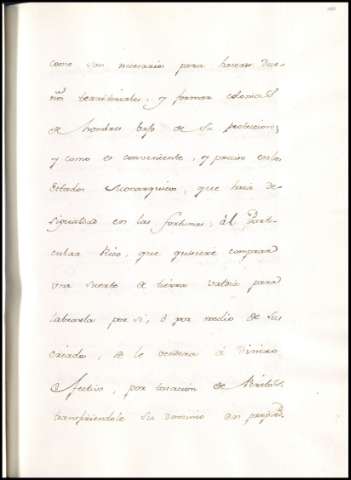 como son necesarios para hacerse Due-
ños territoriales, y formar colonias
de hombres bajo de su proteccion;
y como es conveniente, y preciso en los
Estados Monarquicos, que haia de-
sigualdad en las fortunas, al Parti-
cular Rico, que quisiere comprar
una suerte de tierra valdia para
labrarla por si, ó por medio de sus
criados, se le venderá á Dinero
efectivo, por tasacion de
transfiriendole su dominio en